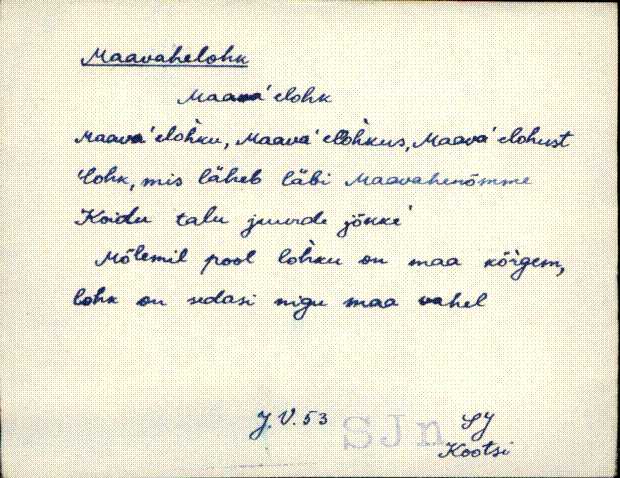 Maavahelohk
Maavá elohk
Maavá elòhku, Maavá elòhkus, Maavá elohust
lohk, mis läheb läbi Maavahenõmme
Koidu talu juurde jõkke
Mõlemil pool lòhku on maa kõrgem,
lohk on sedasi nigu maa vahel
J. V. 53
SJn
SJ
Kootsi